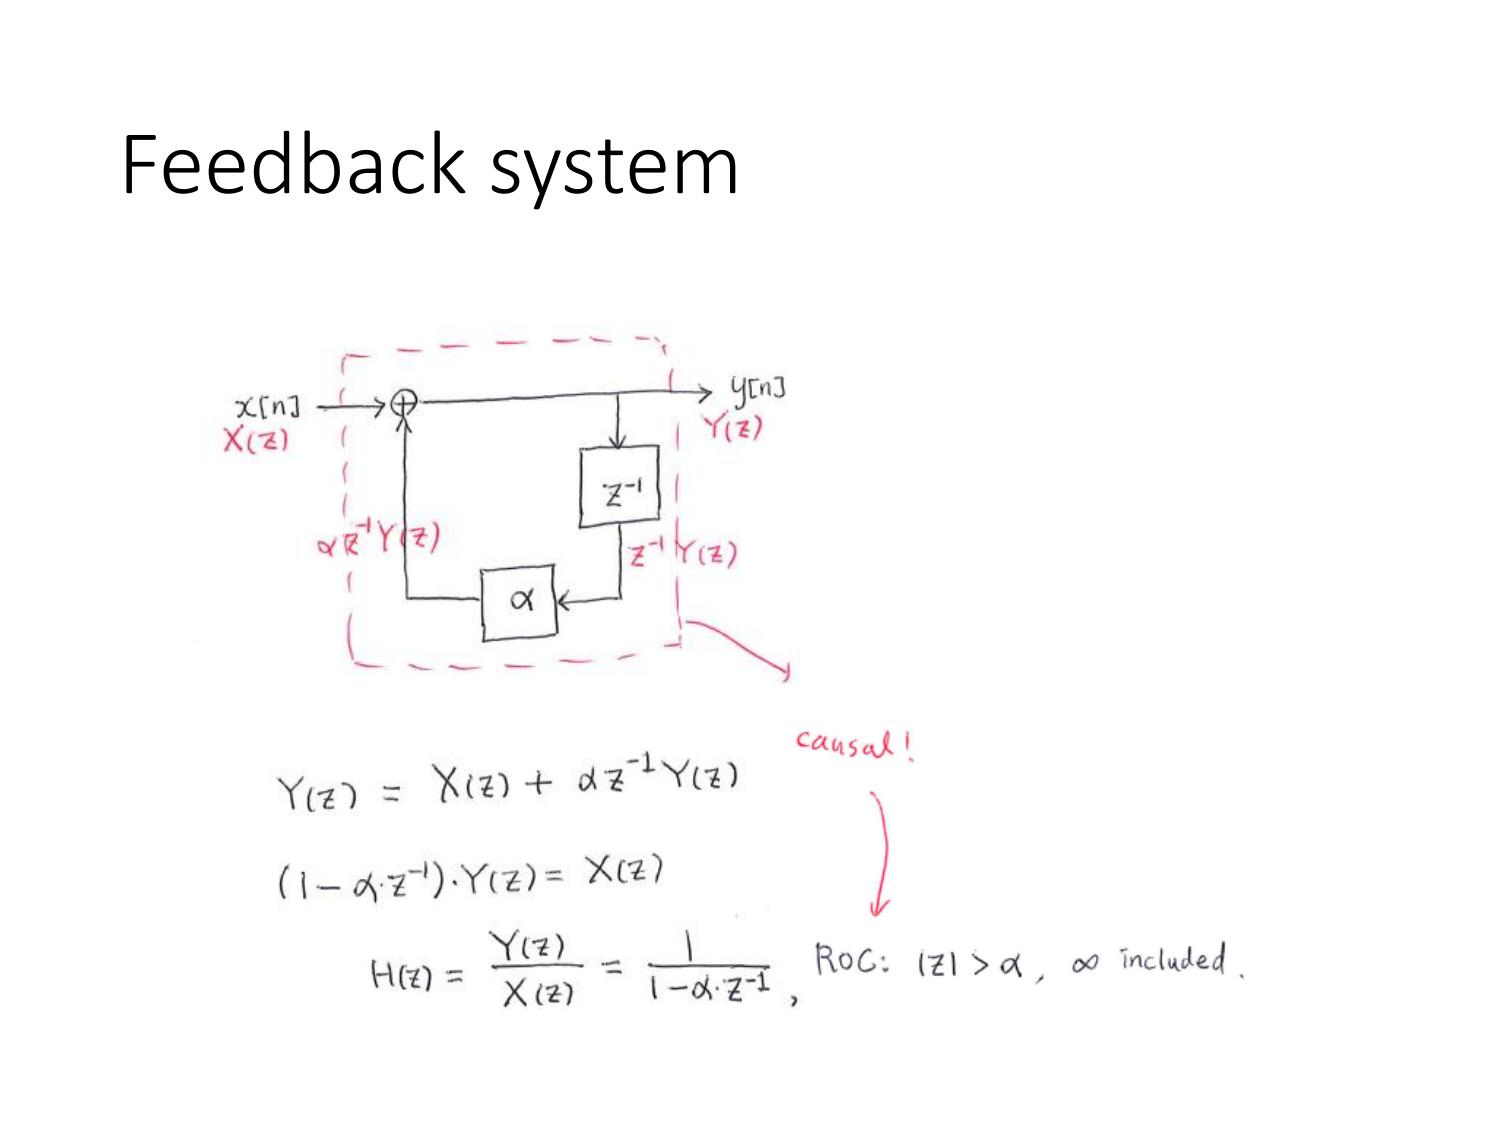 Feedback system
x[n]
X(z)
y[n]
Y(z)
z⁻¹
αz⁻¹Y(z)
z⁻¹Y(z)
α
causal!
Y(z) = X(z) + αz⁻¹Y(z)
(1-α·z⁻¹)·Y(z) = X(z)
H(z) = Y(z)/X(z) = 1/(1-α·z⁻¹), ROC: |z| > α, ∞ included.